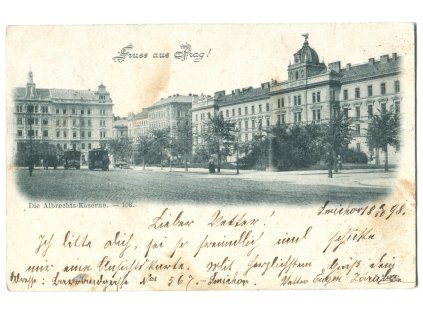 Gruss aus Prag!
Die Albrechts-Kaserne. — 106.
Smichov 18 98.
Lieber Vetter!
Ich bitte dich, sei so freundlich und schicke
mir eine Ansichtskarte. Mit herzlichstem Gruß dein
Adresse: No 567. - Smichow. Vetter Eugen